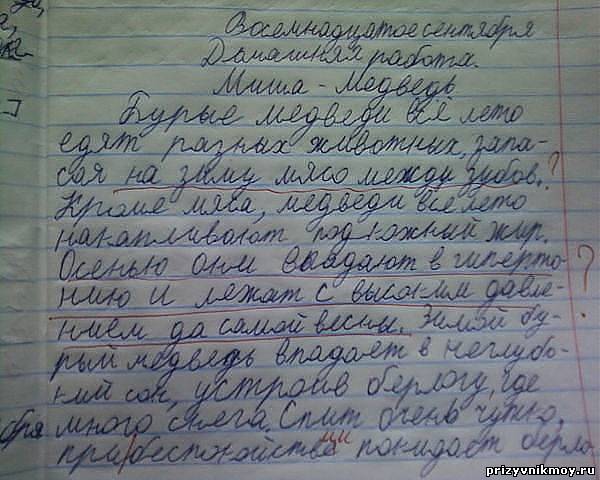 Восемнадцатое сентября
Домашняя работа.
Миша - Медведь
Бурые медведи всё лето
едят разных животных, запа-
сая на зиму мясо между зубов. ?
Кроме мяса, медведи всё лето
накапливают подкожный жир.
Осенью они впадают в гиперто- ?
нию и лежат с высоким давле-
нием до самой весны. Зимой бу-
рый медведь впадает в неглубо-
кий сон, устроив берлогу, где
много снега. Спит очень чутко,
при беспокойстве покидает берло
prizyvnikmoy.ru